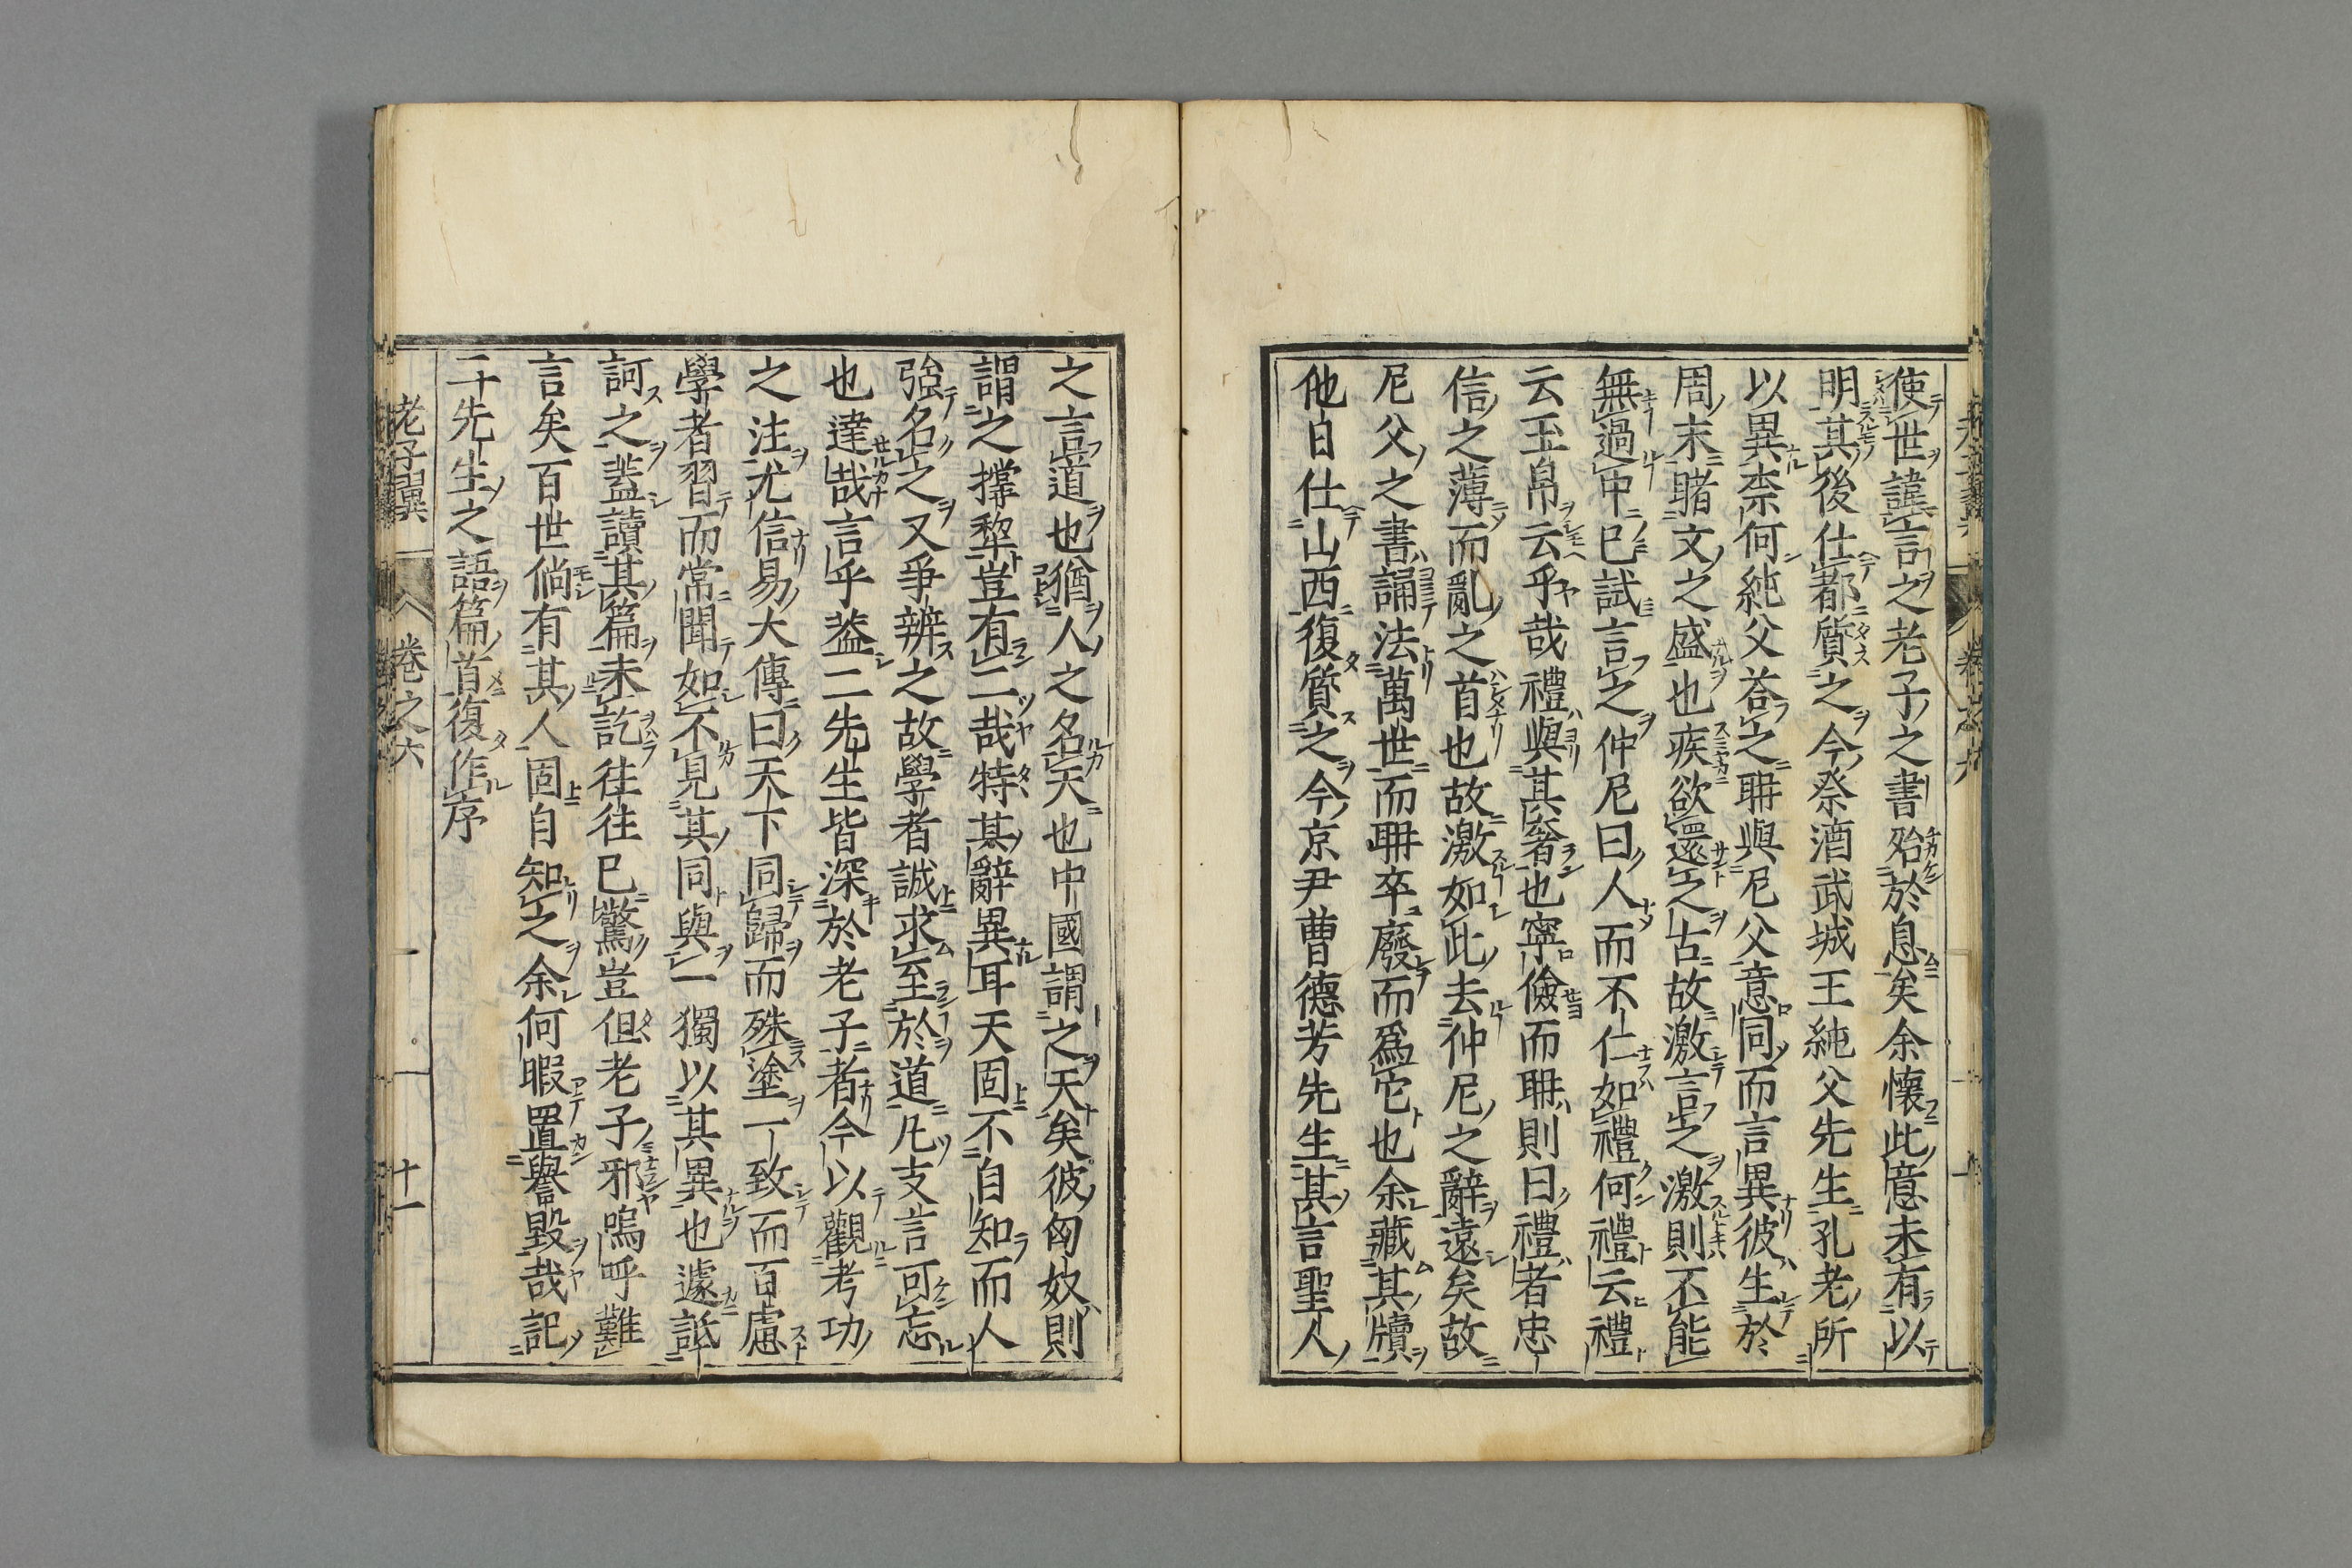 使世諱言之老子之書殆於息矣余懷此意未有以
明其後仕都質之今祭酒武城王純父先生孔老所
以異柰何純父答之聃與尼父意同而言異彼生於
周末睹文之盛也疾欲還之古故激言之激則不能
無過中已試言之仲尼曰人而不仁如禮何禮云禮
云玉帛云乎哉禮與其奢也寧儉而聃則曰禮者忠
信之薄而亂之首也故激如此去仲尼之辭遠矣故
尼父之書誦法萬世而聃卒廢而爲它也余藏其牘
他日仕山西復質之今京尹曹德芳先生其言聖人
之言道也猶人之名天也中國謂之天矣彼匈奴則
謂之撐犂豈有二哉特其辭異耳天固不自知而人
強名之又爭辨之故學者誠求至於道凡支言可忘
也達哉言乎葢二先生皆深於老子者今以觀考功
之注尤信易大傳曰天下同歸而殊塗一致而百慮
學者習而常聞如不見其同與一獨以其異也遽詆
訶之葢讀其篇未訖往往已驚豈但老子邪嗚呼難
言矣百世倘有其人固自知之余何暇置譽毀哉記
二十先生之語篇首復作序
老子翼
卷之六
十一